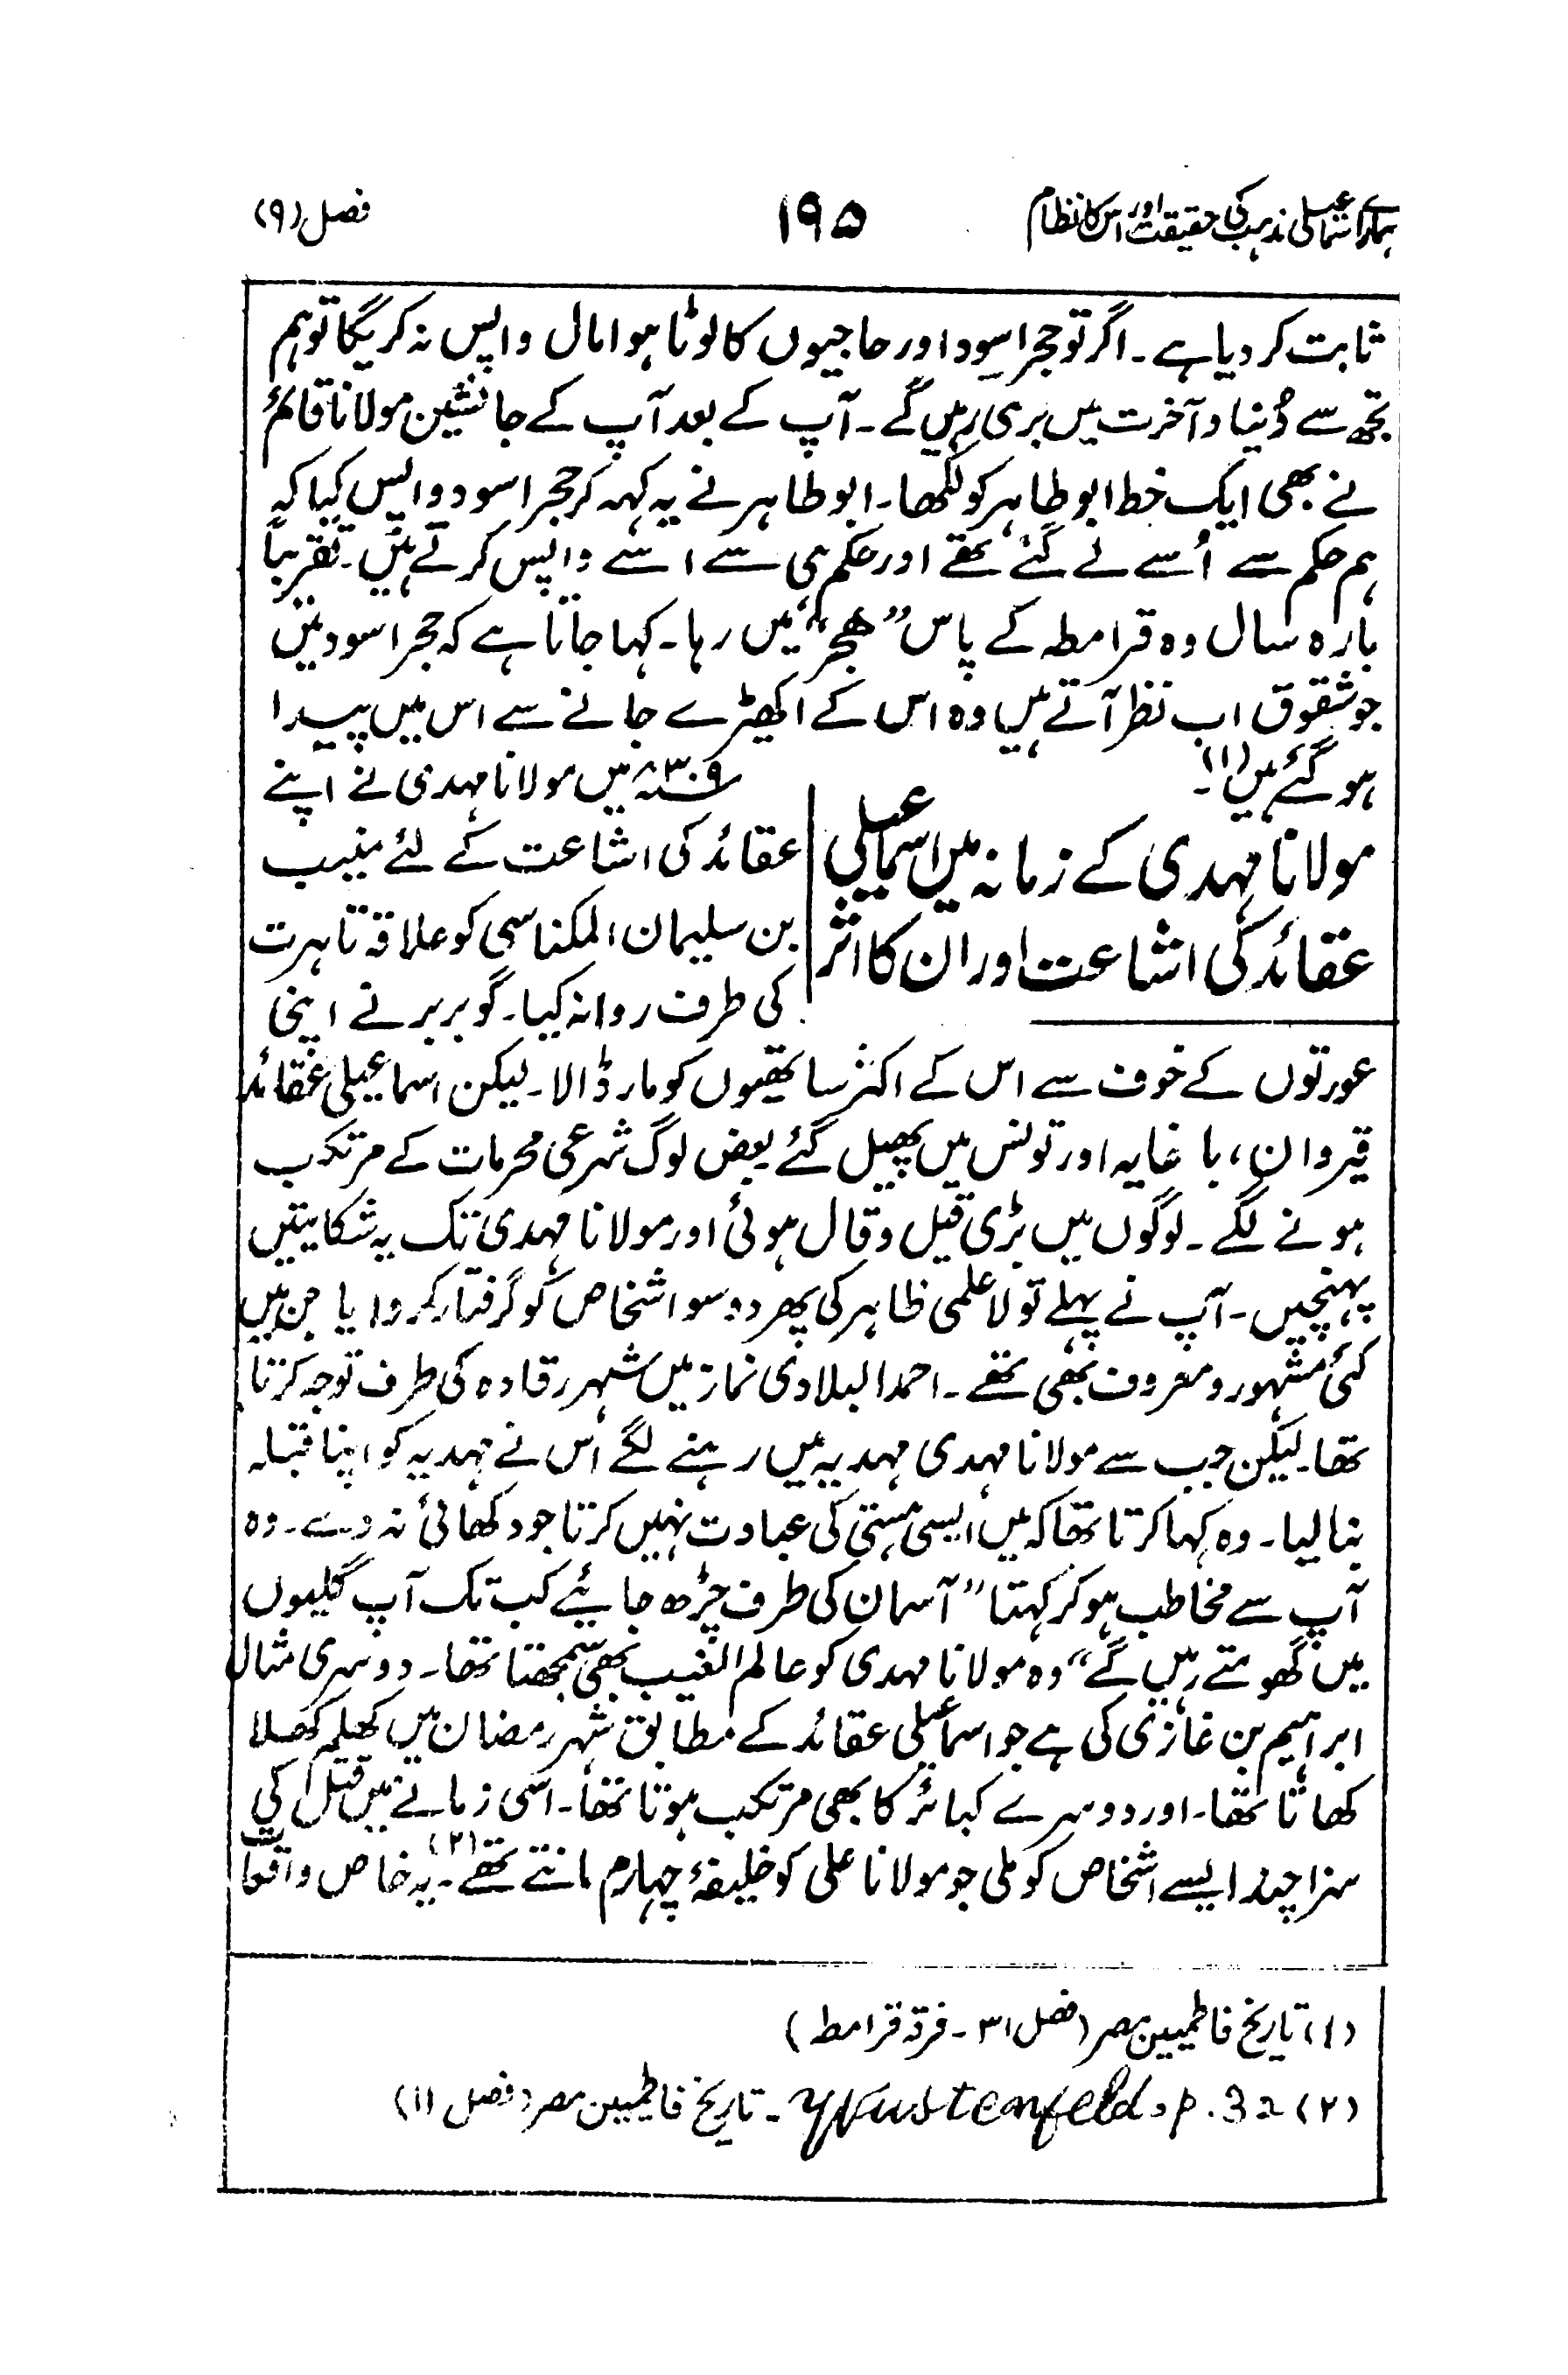 ہمارے اسماعیلی مذہب کی حقیقت اور اس کا نظام
۱۹۵
فصل (۹)
ثابت کر دیا ہے۔ اگر تو حجر اسود اور حاجیوں کا لوٹا ہوا مال واپس نہ کریگا تو ہم
تجھ سے دُنیا و آخرت میں بری رہیں گے۔ آپ کے بعد آپ کے جانشین مولانا قائم
نے بھی ایک خط ابو طاہر کو لکھا۔ ابو طاہر نے یہ کہہ کر حجر اسود واپس کیا کہ
ہم حکم سے اُسے لے گئے تھے اور حکم ہی سے اسے واپس کرتے ہیں۔ تقریباً
بارہ سال وہ قرامطہ کے پاس ”ھجر“ میں رہا۔ کہا جاتا ہے کہ حجر اسود میں
جو شقوق اب نظر آتے ہیں وہ اس کے اکھیڑے جانے سے اس میں پیدا
ہو گئے ہیں (۱)۔
مولانا مہدی کے زمانہ میں اسماعیلی
عقائد کی اشاعت اور ان کا اثر
۳۰۹ھ میں مولانا مہدی نے اپنے
عقائد کی اشاعت کے لئے منیب
بن سلیمان المکناسی کو علاقہ تاہرت
کی طرف روانہ کیا۔ گو بربر نے اپنی
عورتوں کے خوف سے اس کے اکثر ساتھیوں کو مار ڈالا۔ لیکن اسماعیلی عقائد
قیروان، باغایہ اور تونس میں پھیل گئے بعض لوگ شرعی محرمات کے مرتکب
ہونے لگے۔ لوگوں میں بڑی قیل و قال ہوئی اور مولانا مہدی تک یہ شکایتیں
پہنچیں۔ آپ نے پہلے تو لا علمی ظاہر کی پھر دو سو اشخاص کو گرفتار کروایا جن میں
کئی مشہور و معروف بھی تھے۔ احمد البلادی نماز میں شہر رقادہ کی طرف توجہ کرتا
تھا۔ لیکن جب سے مولانا مہدی مہدیہ میں رہنے لگے اس نے مہدیہ کو اپنا قبلہ
بنا لیا۔ وہ کہا کرتا تھا کہ میں ایسی ہستی کی عبادت نہیں کرتا جو دکھائی نہ دے۔ وہ
آپ سے مخاطب ہو کر کہتا ”آسمان کی طرف چڑھ جایئے کب تک آپ گلیوں
میں گھومتے رہیں گے“ وہ مولانا مہدی کو عالم الغیب بھی سمجھتا تھا۔ دوسری مثال
ابراہیم بن غازی کی ہے جو اسماعیلی عقائد کے مطابق شہر رمضان میں کھلم کھلا
کھاتا تھا۔ اور دوسرے کبائر کا بھی مرتکب ہوتا تھا۔ اسی زمانے میں قتل کی
سزا چند ایسے اشخاص کو ملی جو مولانا علی کو خلیفۂ چہارم مانتے تھے۔(۲) یہ خاص واقعات
(۱) تاریخ فاطمیین مصر (فصل ۳۱ ۔ فرقہ قرامطہ)
(۲) Wustenfeld. p. 32 ۔ تاریخ فاطمیین مصر (فصل ۱۱)